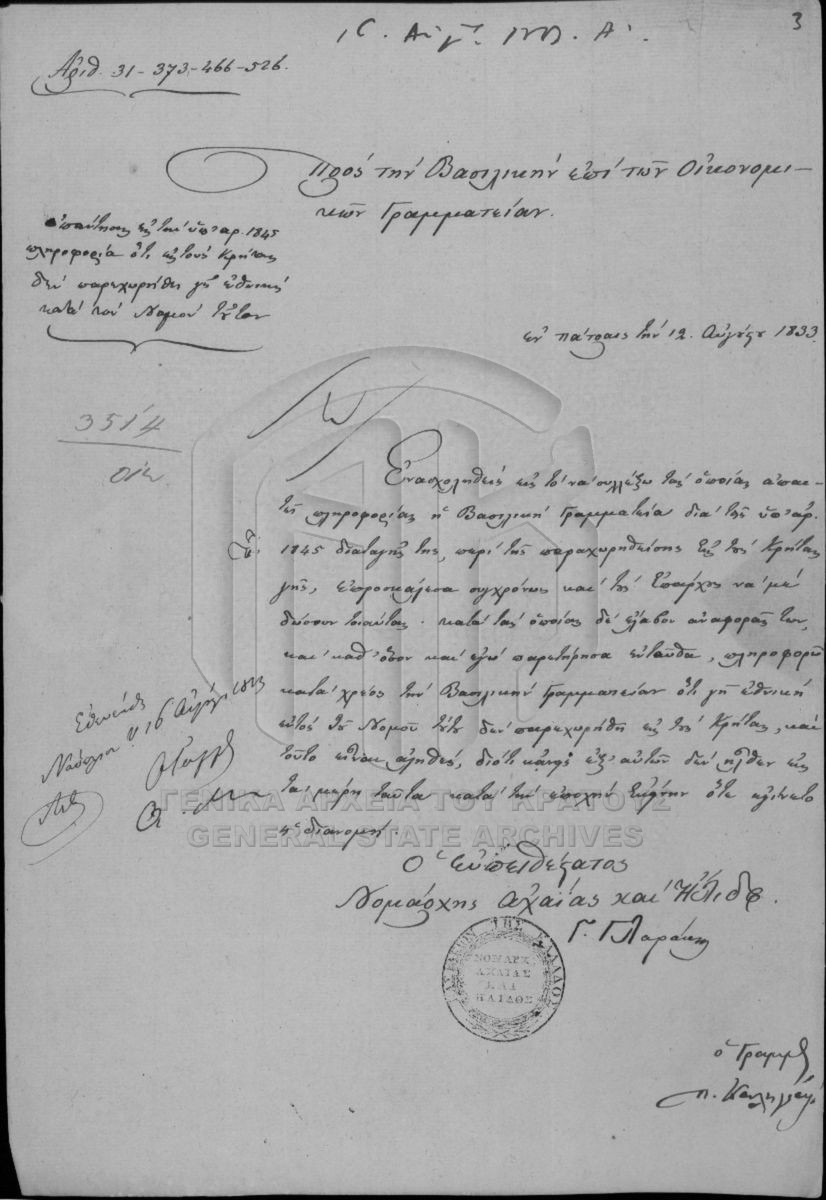 3
Ἀριθ. 31-373-466-526.
Πρὸς τὴν Βασιλικὴν ἐπὶ τῶν Οἰκονομι-
κῶν Γραμματείαν.
ἀπάντησις εἰς τὴν ὑπ' ἀρ. 1845
πληροφορία ὅτι εἰς τοὺς Κρῆτας
δὲν παρεχωρήθη γῆ ἐθνικὴ
κατὰ τὸν Νομὸν τοῦτον
ἐν Πάτραις τὴν 12. Αὐγούστου 1833.
3514
Οἰκ.
Ἐνασχοληθεὶς εἰς τὸ νὰ συλλέξω τὰς ὁποίας ἀπαι-
τεῖ πληροφορίας ἡ Βασιλικὴ Γραμματεία διὰ τῆς ὑπ' ἀρ.
1845 διαταγῆς της, περὶ τῆς παραχωρηθείσης εἰς τοὺς Κρῆτας
γῆς, ἐπροσκάλεσα συγχρόνως καὶ τοὺς Ἐπάρχους νὰ μὲ
δώσουν τοιαύτας. κατὰ τὰς ὁποίας δὲ ἔλαβον ἀναφοράς των,
καὶ καθ' ὅσον καὶ ἐγὼ παρετήρησα ἐνταῦθα, πληροφορῶ
κατὰ χρέος τὴν Βασιλικὴν Γραμματείαν ὅτι γῆ ἐθνικὴ
ἐντὸς τοῦ Νομοῦ τούτου δὲν παρεχωρήθη εἰς τοὺς Κρῆτας, καὶ
τοῦτο εἶναι ἀληθές, διότι κανεὶς ἐξ' αὐτῶν δὲν ἦλθεν εἰς
τὰ μέρη ταῦτα κατὰ τὴν ἐποχὴν ἐκείνην ὅτε ἐγίνετο
ἡ διανομή.
Ναύπλιον 16 Αὐγούστου 1833
ΓΕΝΙΚΑ ΑΡΧΕΙΑ ΤΟΥ ΚΡΑΤΟΥΣ
GENERAL STATE ARCHIVES
Ὁ εὐπειθέστατος
Νομάρχης Ἀχαΐας καὶ Ἤλιδος.
Γ. Γλαράκης
ΒΑΣΙΛΕΙΟΝ ΤΗΣ ΕΛΛΑΔΟΣ
ΝΟΜΑΡΧ
ΑΧΑΙΑΣ
ΚΑΙ
ΗΛΙΔΟΣ
ὁ Γραμμ.